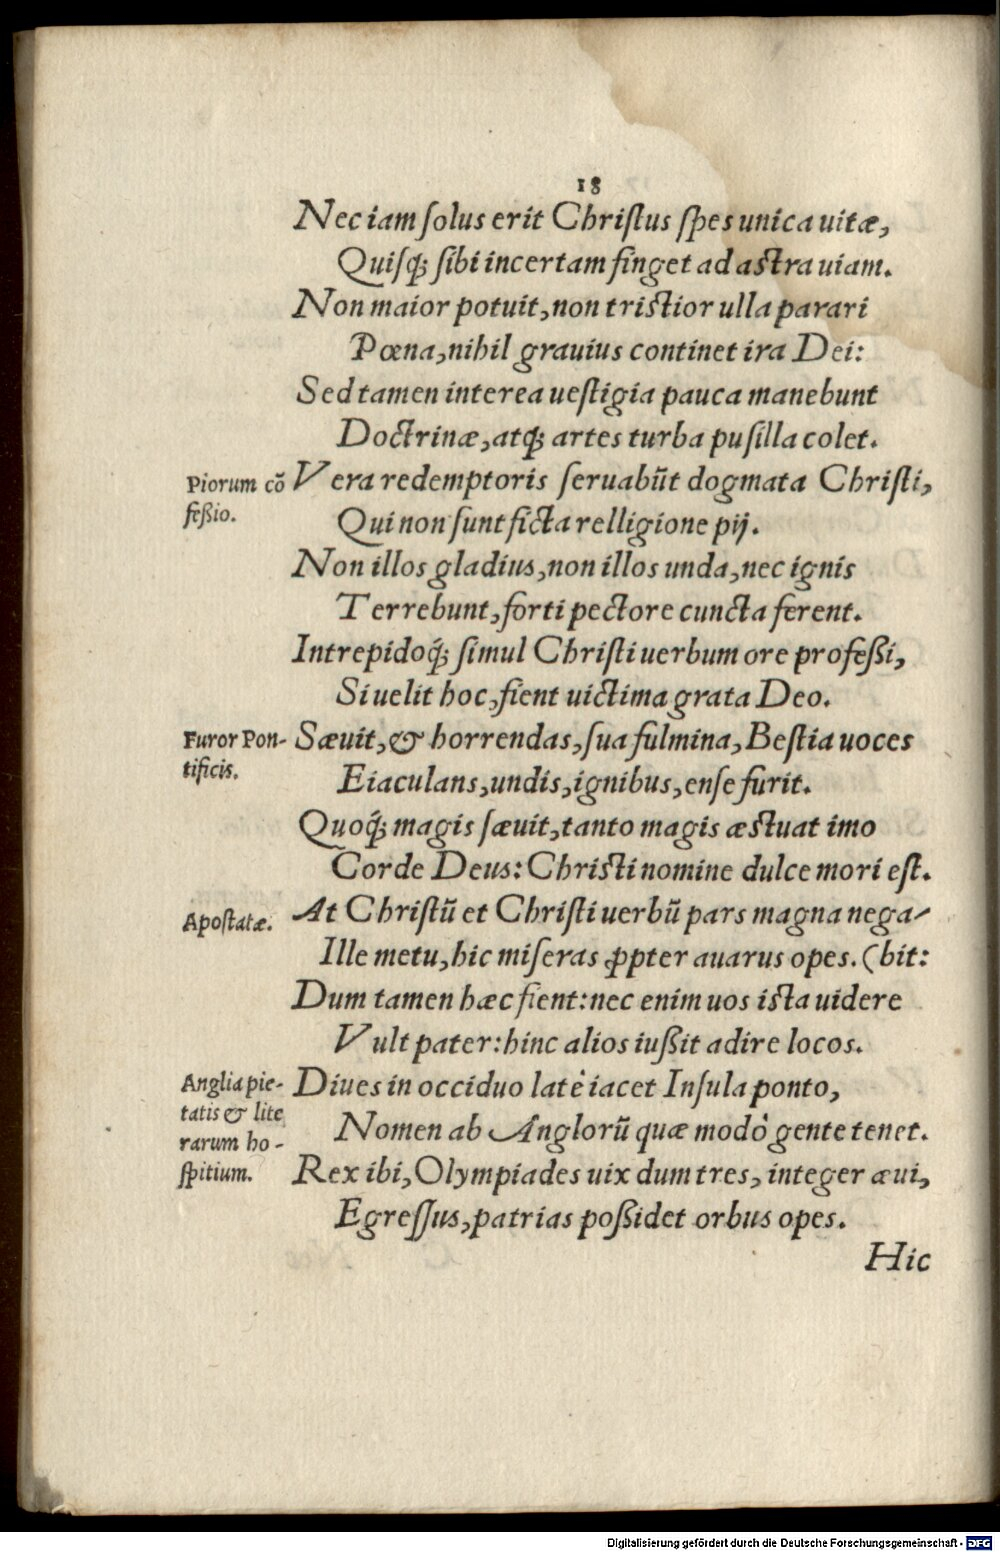 18
Nec iam ſolus erit Chriſtus ſpes unica uitæ,
Quiſq; ſibi incertam finget ad astra uiam.
Non maior potuit, non tristior ulla parari
Pœna, nihil grauius continet ira Dei:
Sed tamen interea ueſtigia pauca manebunt
Doctrinæ, atq; artes turba puſilla colet.
Piorum cõ
feßio.
Vera redemptoris ſeruabũt dogmata Chriſti,
Qui non ſunt ficta relligione pij.
Non illos gladius, non illos unda, nec ignis
Terrebunt, forti pectore cuncta ferent.
Intrepidoq́; ſimul Chriſti uerbum ore profeßi,
Si uelit hoc, fient uictima grata Deo.
Furor Pon-
tificis.
Sæuit, & horrendas, ſua fulmina, Beſtia uoces
Eiaculans, undis, ignibus, enſe furit.
Quoq́; magis ſæuit, tanto magis æstuat imo
Corde Deus: Christi nomine dulce mori eſt.
Apoſtatæ.
At Chriſtũ et Chriſti uerbũ pars magna nega-
Ille metu, hic miſeras ꝓpter auarus opes. (bit:
Dum tamen hæc fient: nec enim uos iſta uidere
Vult pater: hinc alios iußit adire locos.
Anglia pie-
tatis & lite
rarum ho-
ſpitium.
Diues in occiduo latè iacet Inſula ponto,
Nomen ab Anglorũ quæ modò gente tenet.
Rex ibi, Olympiades uix dum tres, integer æui,
Egreſſus, patrias poßidet orbus opes.
Hic
Digitalisierung gefördert durch die Deutsche Forschungsgemeinschaft - DFG